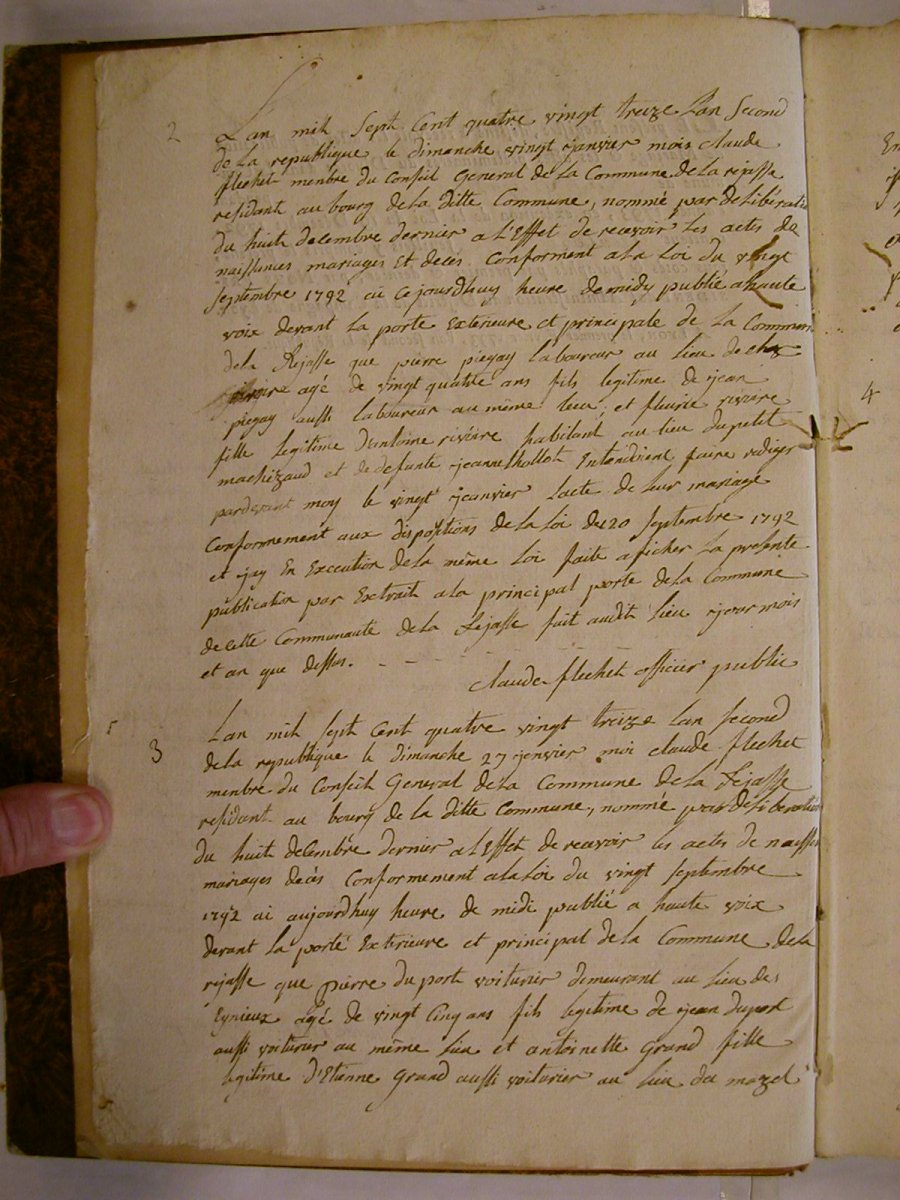 2
Lan mil Sept Cent quatre vingt treize Lan Second
de La republique le dimanche vingt janvier mois claude
flechet menbre du Conseil General de La Commune de La rejasse
residant au bourg de La ditte Commune, nommé par deliberatio
du huit decembre dernier a l'Effet de recevoir Les actes de
naissances mariages et deces Conforment a La Loi du vingt
septembre 1792 ai Cejourdhuy heure de midy publié a haute
voix devant La porte Exterieure et principale de La Commune
de La Rejasse que pierre piegay laboureur au lieu de chez
agé de vingt quatre ans fils legitime de jean
piegay aussi laboureur au même lieu, et fleurie riviere
fille legitime d'antoine riviere habitant au lieu du petit
machizaud et de defunte jeanne thollot Entendoient faire rediger
pardevant moy le vingt janvier Lacte de Leur mariage
Conformement aux dispositions de La Loi du 20 septembre 1792
et jay En Execution de La même Loi faite aficher La presente
publication par Extrait a La principal porte de La Commune
de Cette Communaute de La Rejasse fait audit Lieu jour mois
et an que dessus. - - - -
claude flechet officier public
3
Lan mil sept Cent quatre vingt treize Lan second
de La republique le dimanche 27 janvier moi claude flechet
menbre du Conseil General de La Commune de La Rejasse
residant au bourg de La ditte Commune, nommée par deliberation
du huit decembre dernier a l'Effet de recevoir les actes de naisses
mariages decès Conformement a La Loi du vingt septembre
1792 ai aujourdhuy heure de midi publié a haute voix
devant La porte Exterieure et principal de La Commune de La
rejasse que pierre du port voiturier demeurant au Lieu des
Eynieux agé de vingt Cinq ans fils legitime de jean duport
aussi voiturier au même Lieu et antoinette Grand fille
legitime d'Etienne Grand aussi voiturier au Lieu du mazel
4